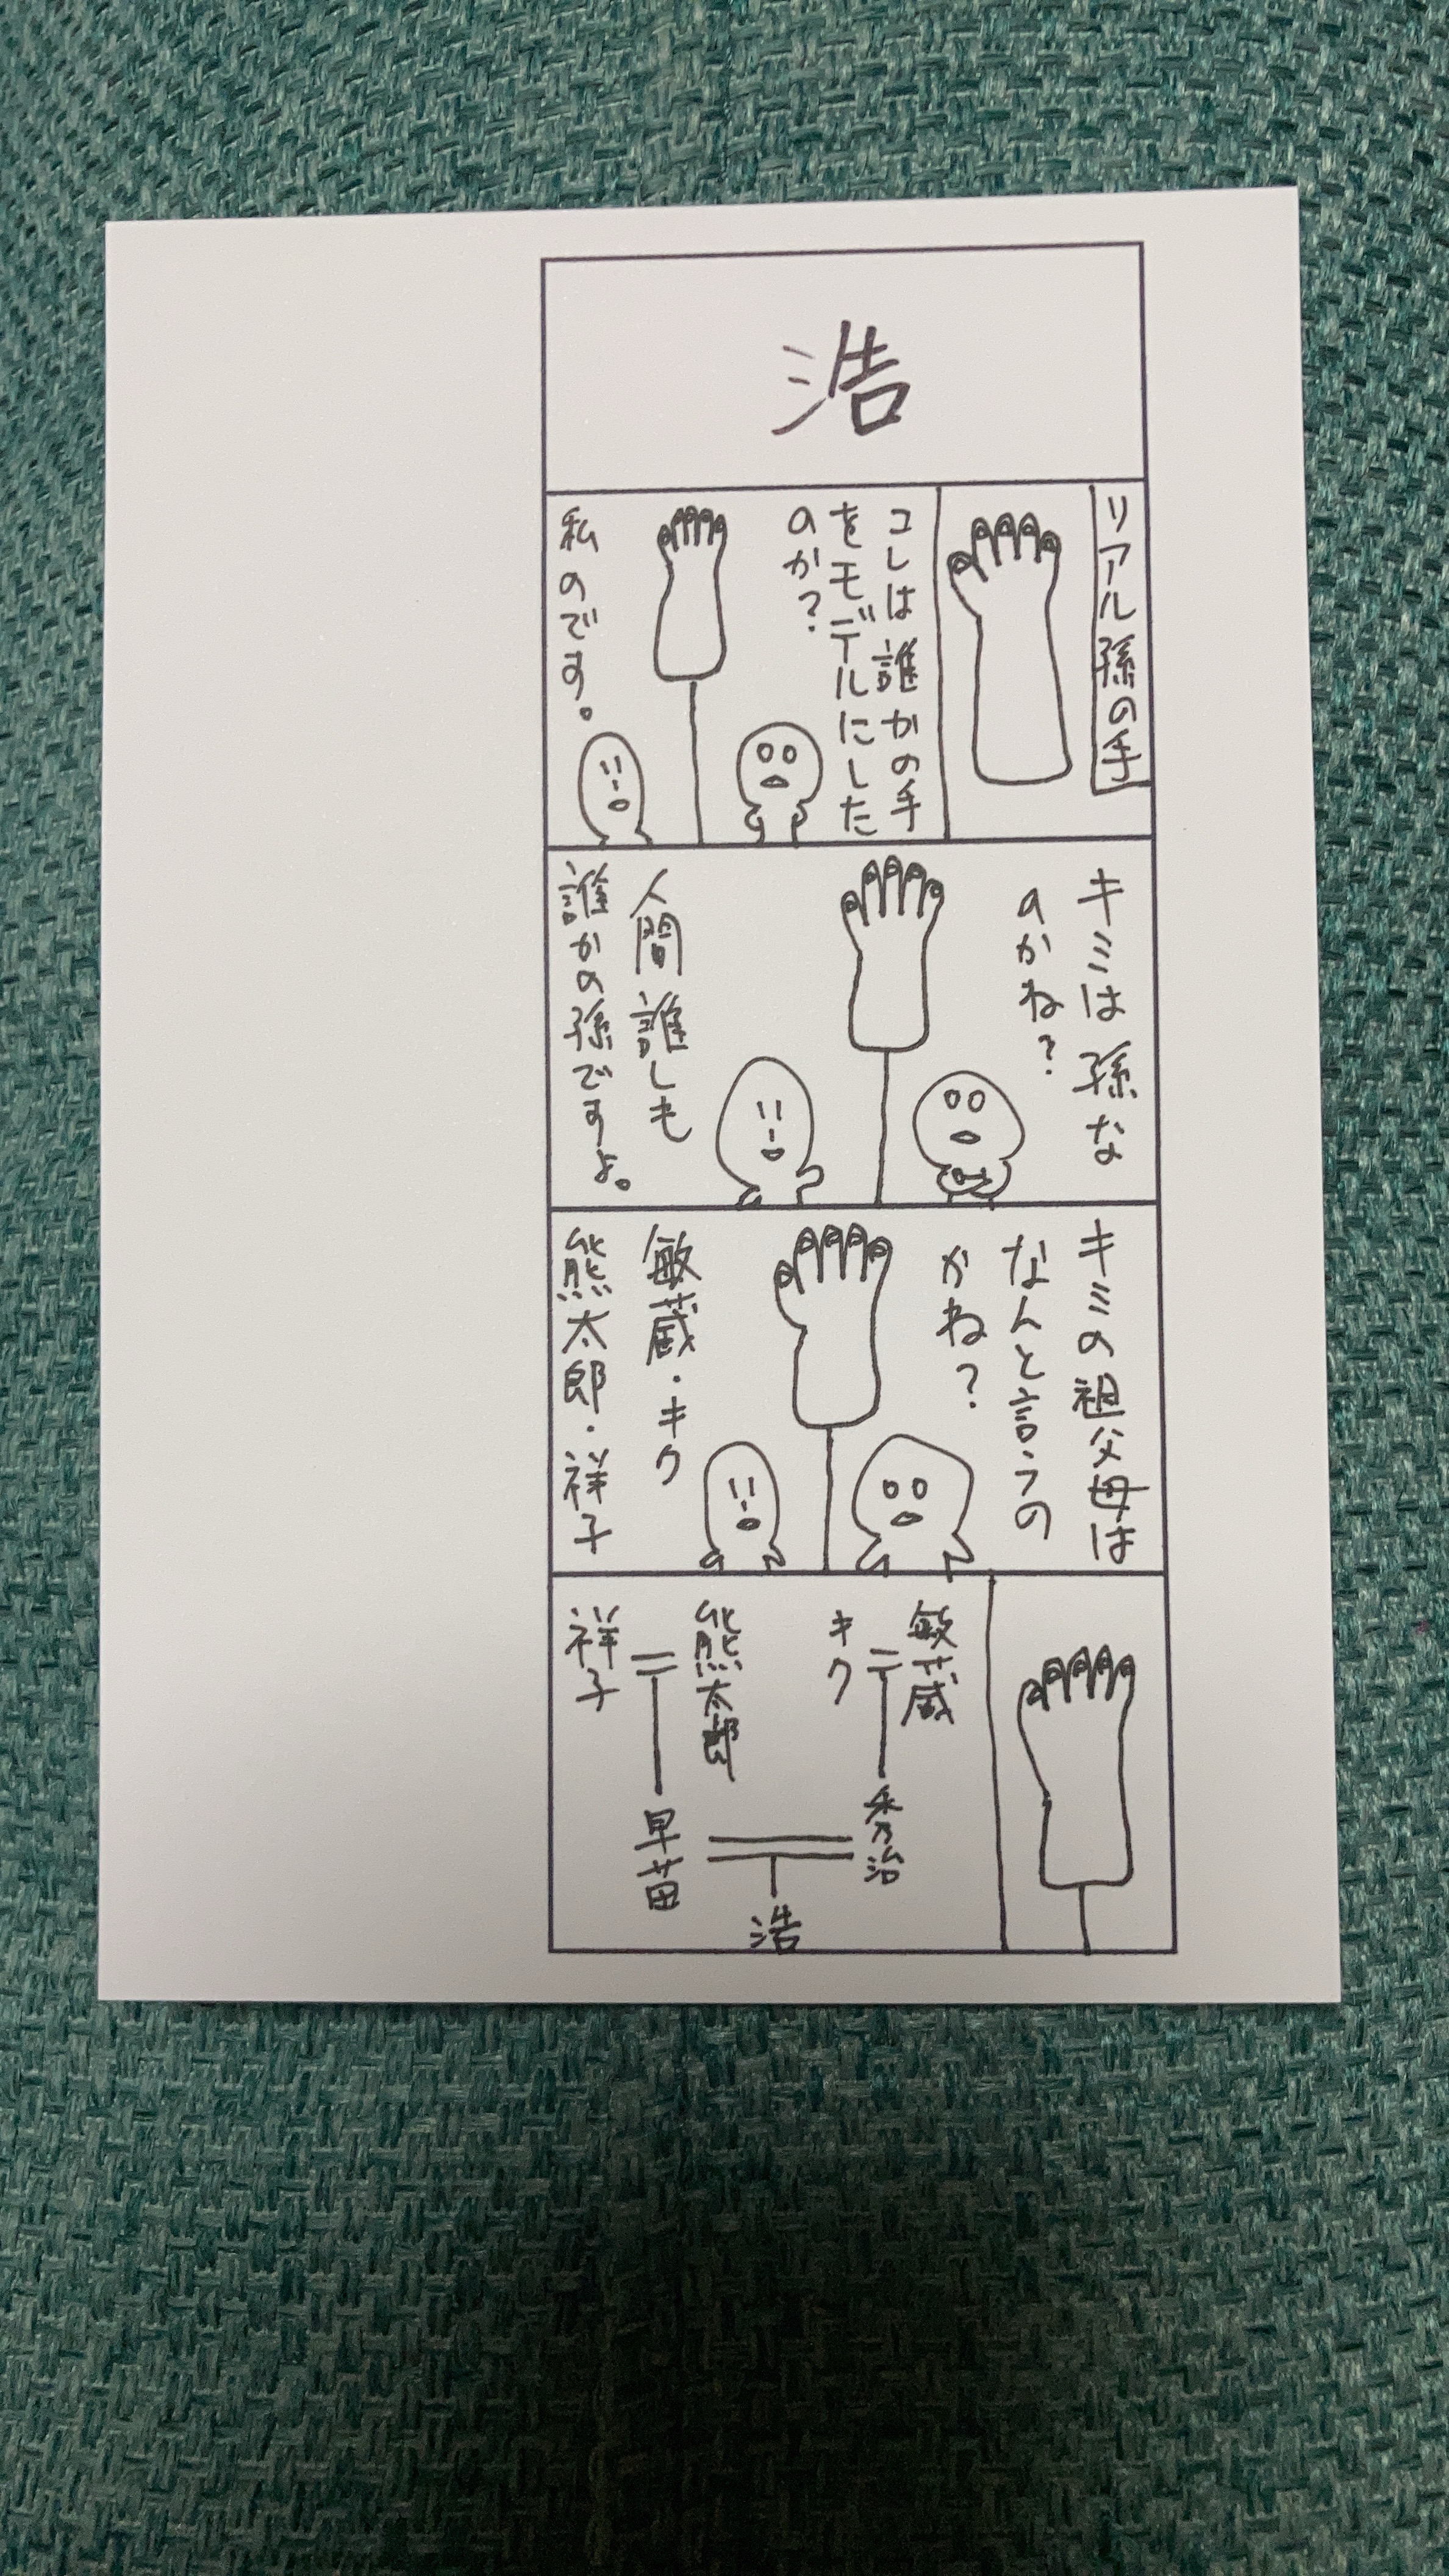 浩
リアル孫の手
コレは誰かの手
をモデルにした
のか？
私のです。
キミは孫な
のかね？
人間誰しも
誰かの孫ですよ。
キミの祖父母は
なんと言うの
かね？
敏蔵・キク
熊太郎・祥子
敏蔵
キク
秀治
熊太郎
祥子
早苗
浩